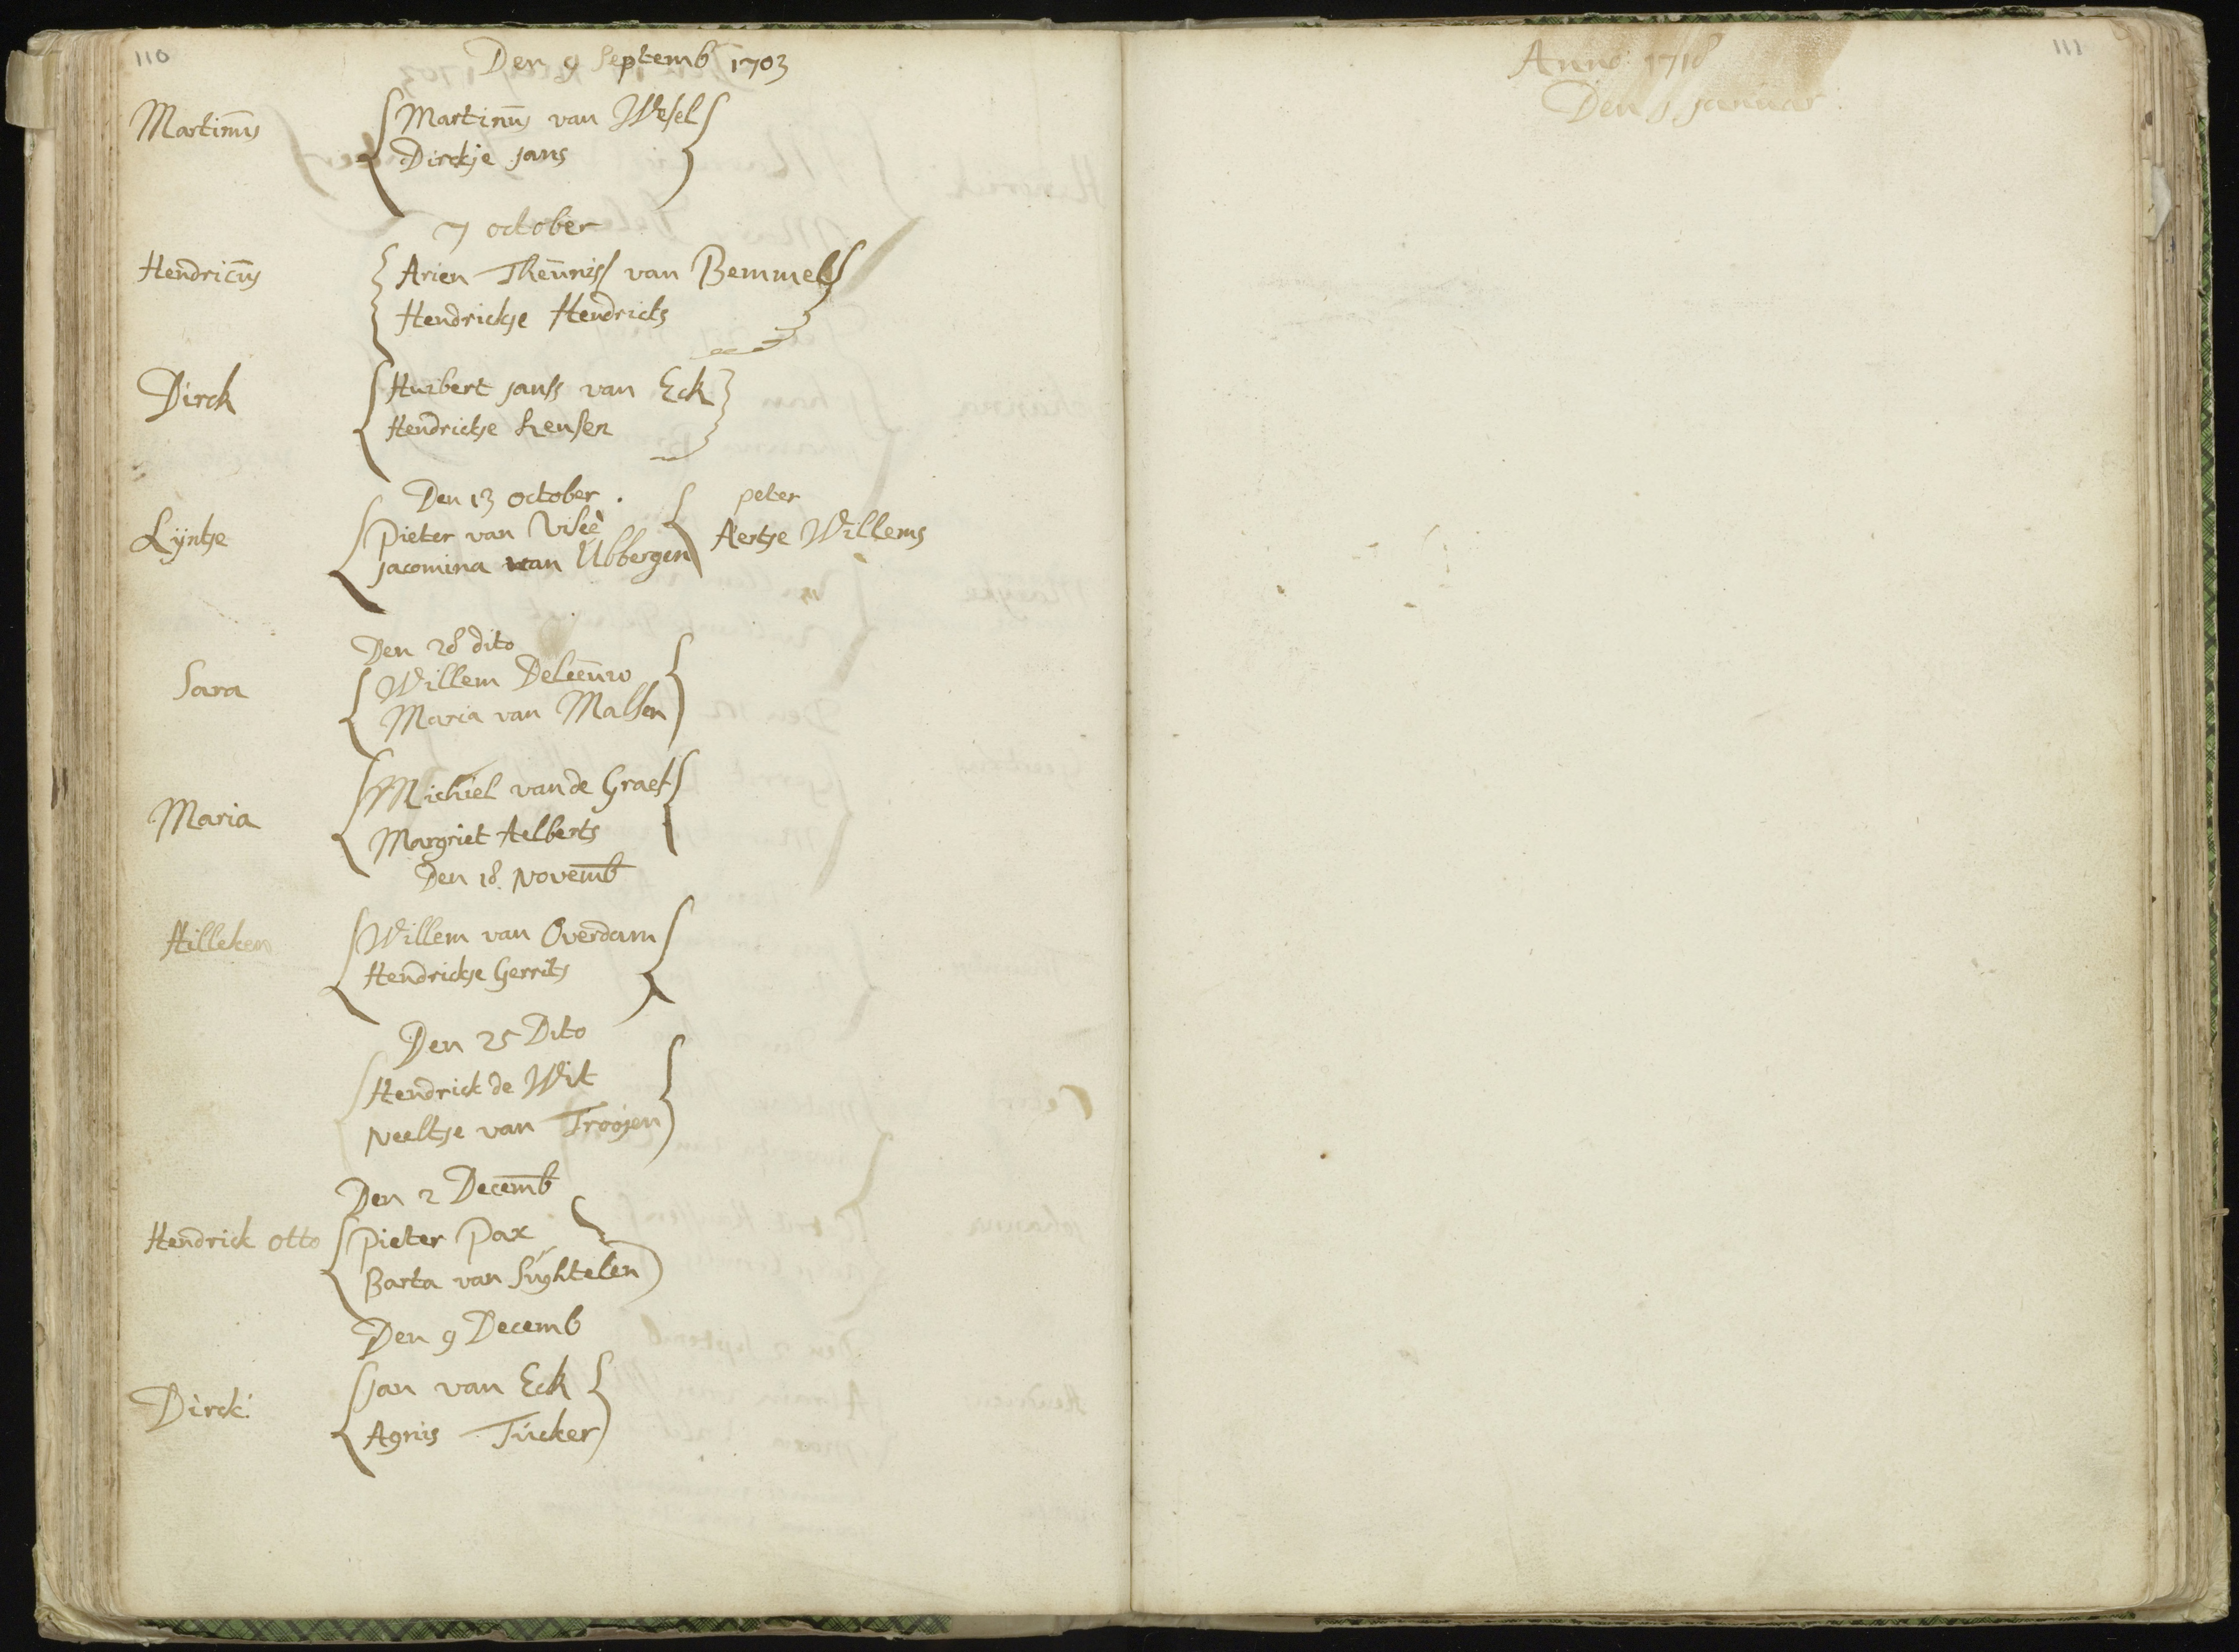 110
Den 9 Septemb 1703
Martinus
Martinus van Wesel
Dirckje Jans
7 october
Hendricus
Arien Theuniss van Bemmel
Hendrickje Hendricks
Dirck
Huibert Janss van Eck
Hendrickje
Den 13 october.
Lijntje
Pieter van
Jacomina van Ubbergen
peter
Aertje Willems
Den 28 dito
Sara
Willem Deleeuw
Maria van Malsen
Maria
Michiel van de Graef
Margriet Aelberts
Den 18. Novemb
Hilleken
Willem van Overdam
Hendrickje Gerrits
Den 25 Dito
Hendrick de Wit
Neeltje van Troojen
Den 2 Decemb
Hendrick Otto
Pieter Pax
Barta van Sughtelen
Den 9 Decemb
Dirck
Jan van Eck
Agnis Tucker
111
Anno 1718
Den Januar